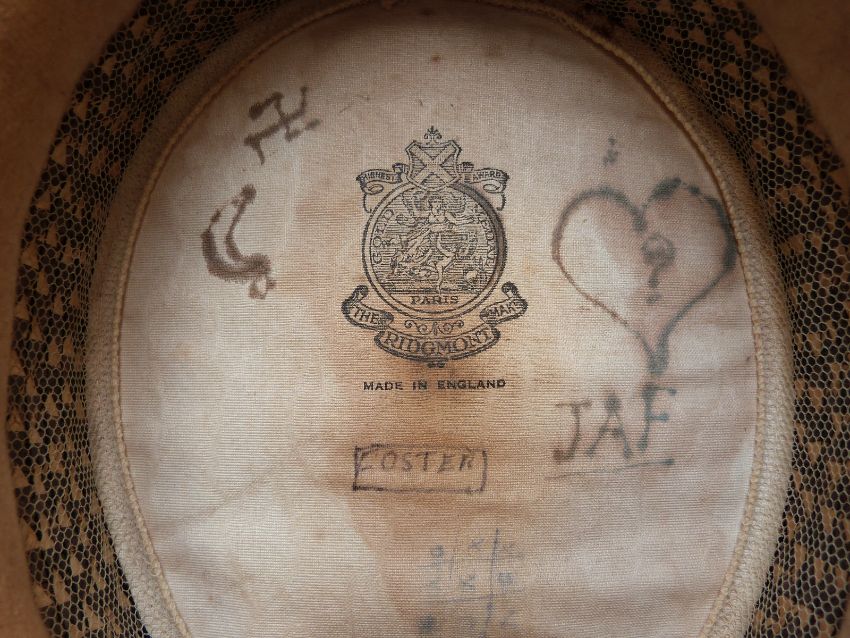 HIGHEST AWARD
GOLD MEDAL
PARIS
THE RIDGMONT MAKE
MADE IN ENGLAND
FOSTER
JAF